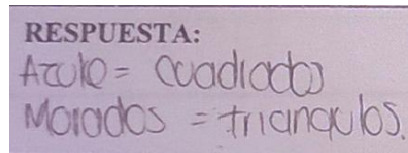 RESPUESTA:
Azule = Cuadrados
Morados = triangulos.